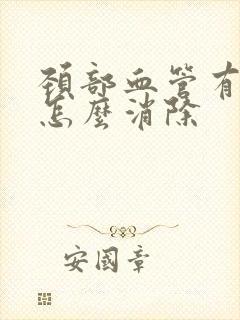 頸部血管有
怎麼消除
安國章